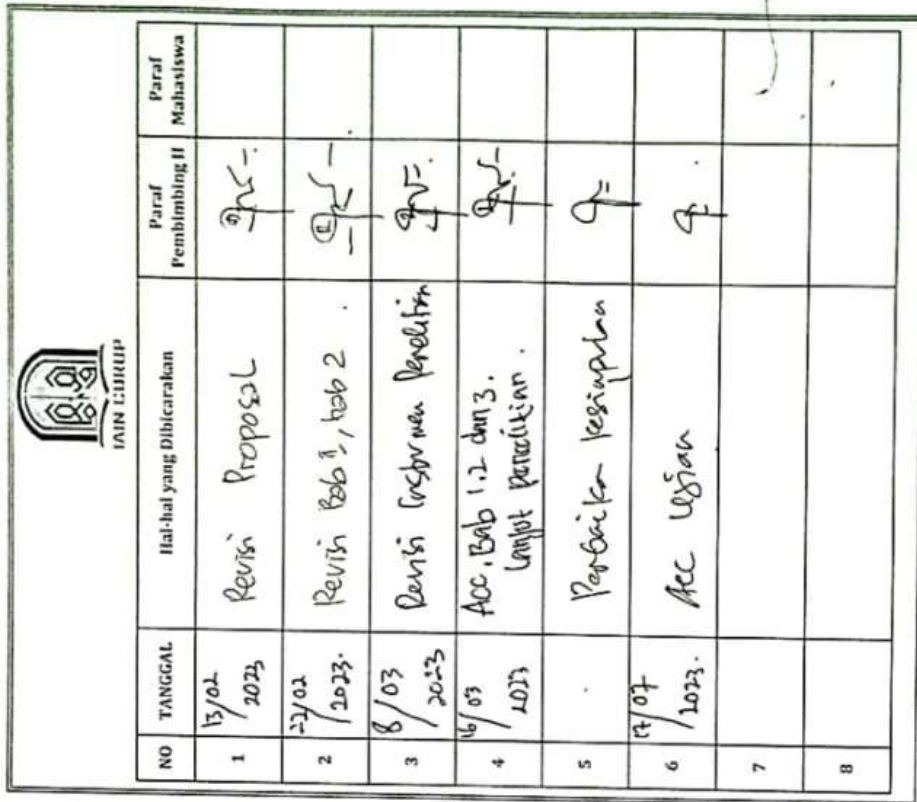 IAIN CURUP
NO TANGGAL Hal-hal yang Dibicarakan Paraf Pembimbing II Paraf Mahasiswa
1 13/02 2023 Revisi Proposal
2 22/02 2023. Revisi Bab 1, bab 2.
3 8/03 2023 Revisi Instrumen Penelitian
4 16/03 2023 Acc. Bab 1.2 dan 3.
Lanjut penelitian.
5 Perbaikan kesimpulan
6 17/07 2023. Acc Ujian
7
8